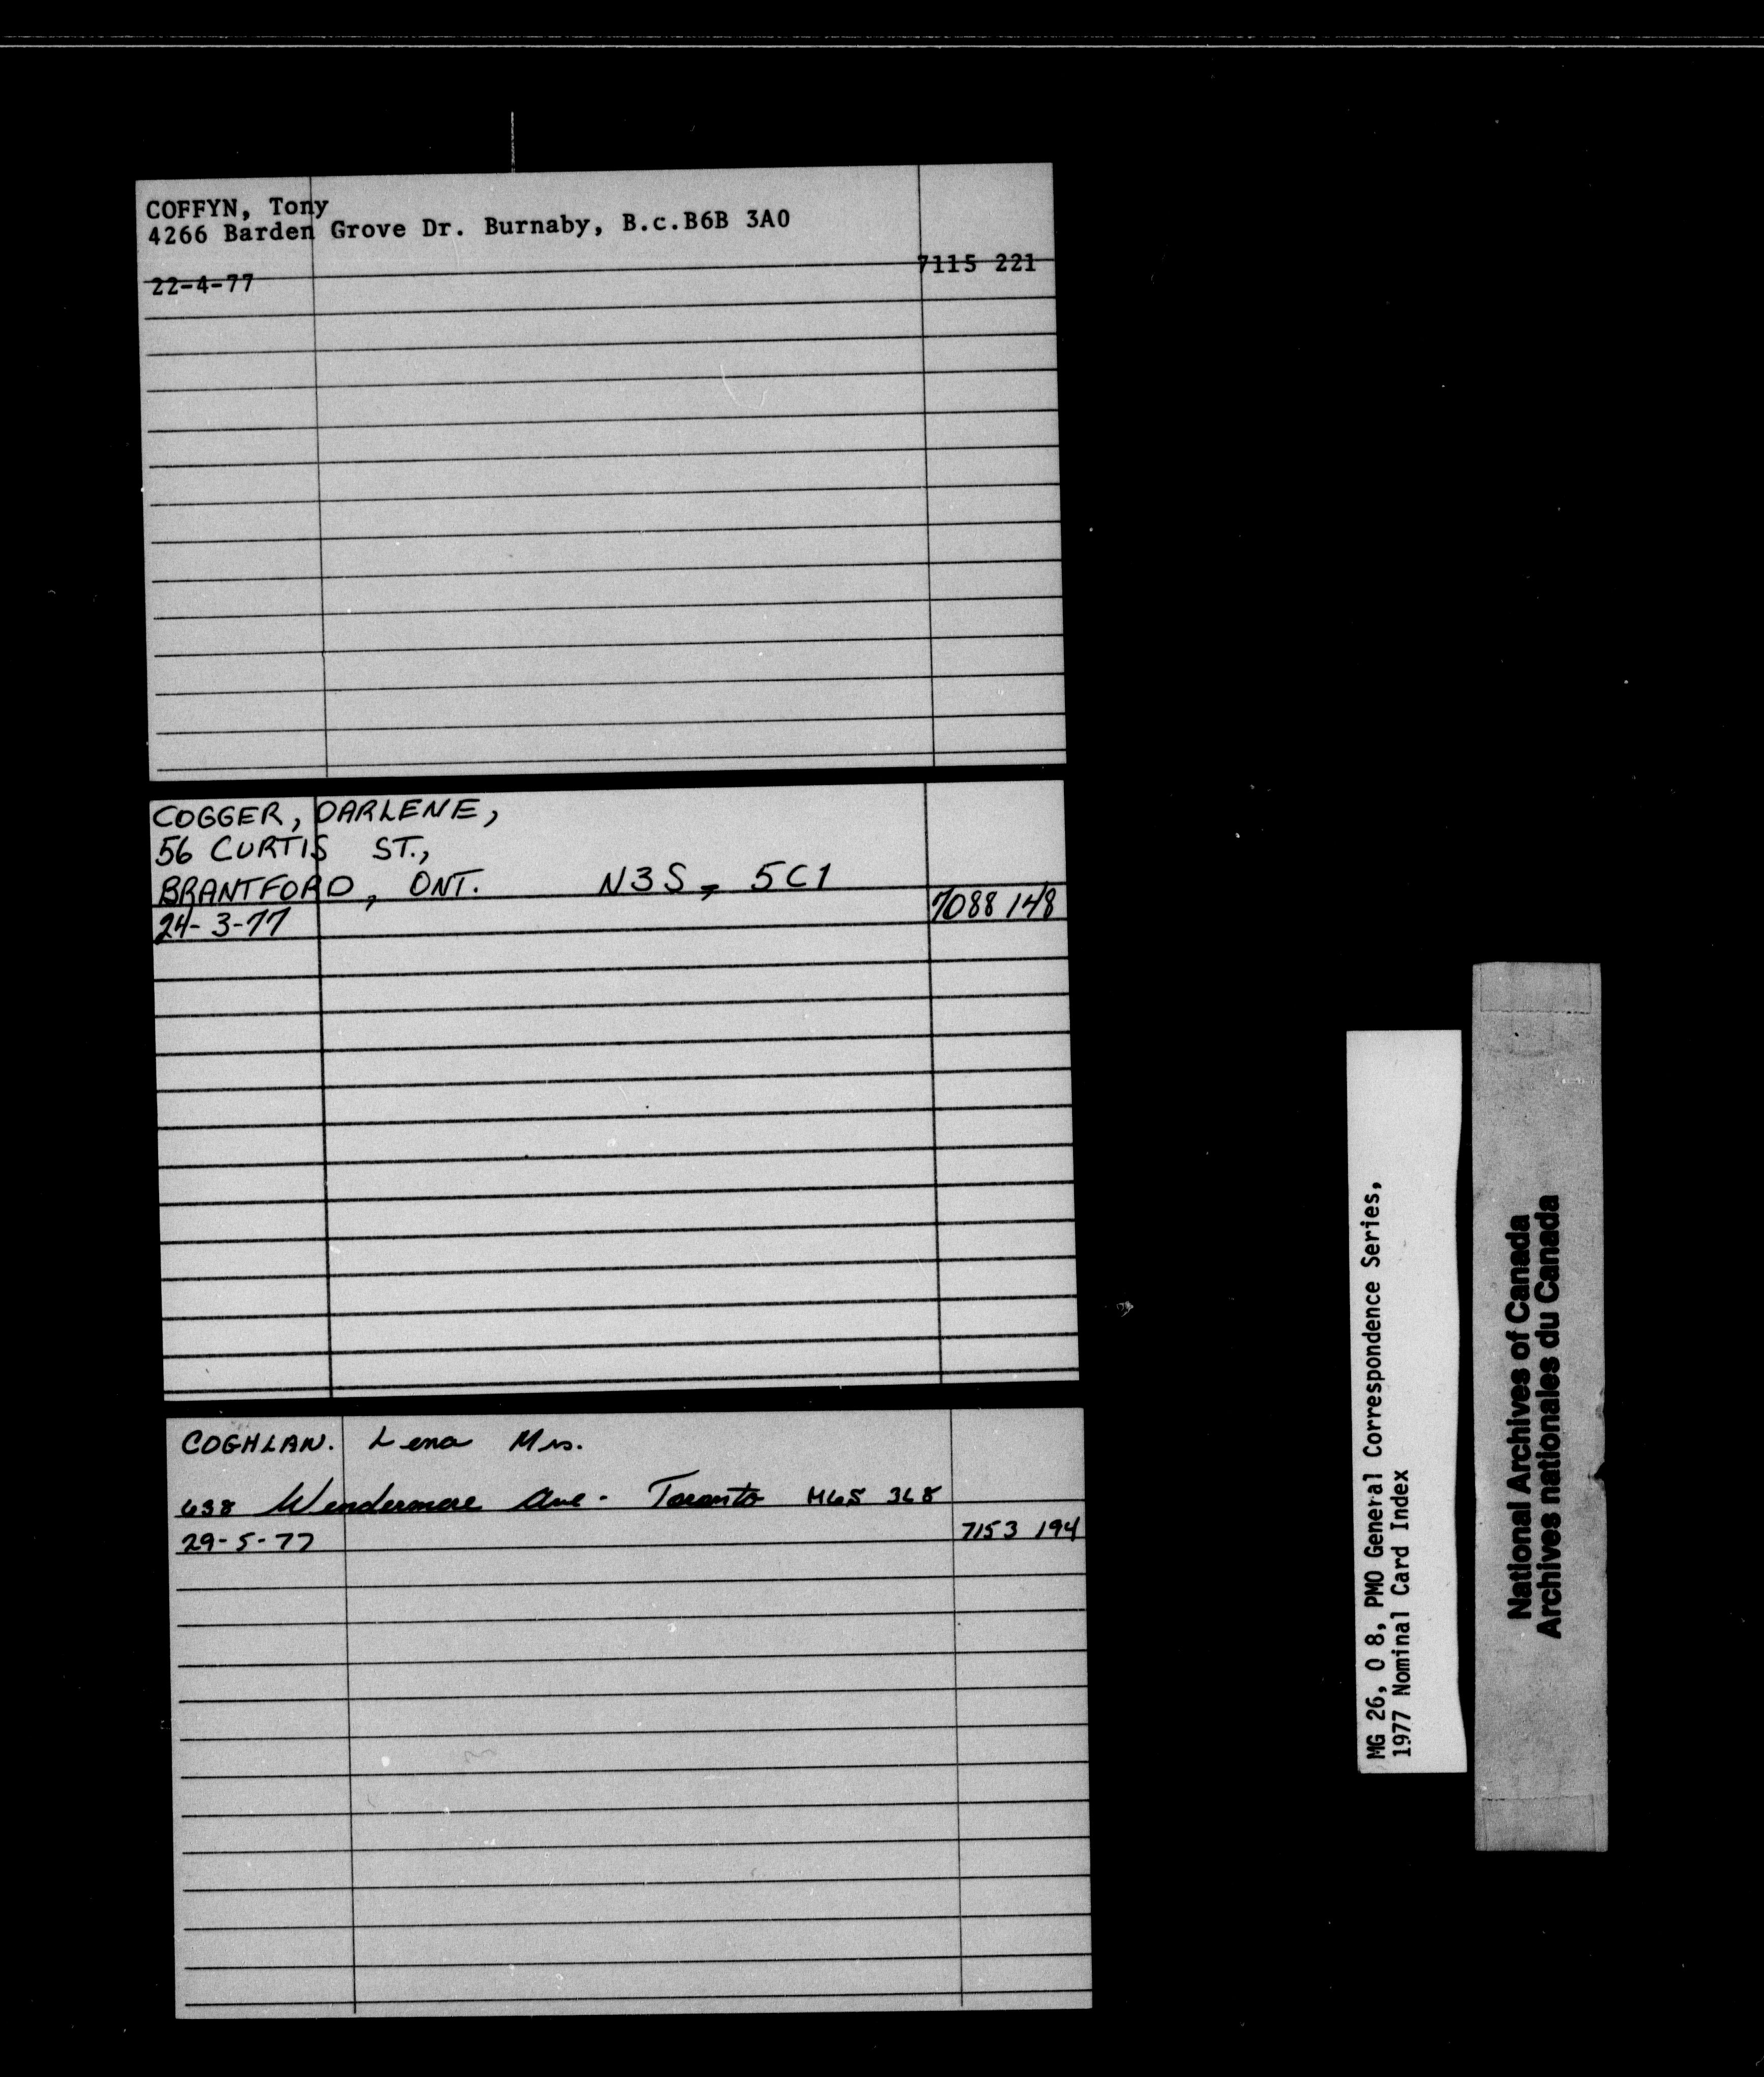 COFFYN, Tony
4266 Barden Grove Dr. Burnaby, B.c.B6B 3A0
22-4-77 7115 221
COGGER, DARLENE,
56 CURTIS ST.,
BRANTFORD, ONT. N3S, 5C1
24-3-77 7088 148
COGHLAN. Lena Mrs.
638 Windermere Ave. Toronto M6S 3L8
29-5-77 7153 194
MG 26, O 8, PMO General Correspondence Series,
1977 Nominal Card Index
National Archives of Canada
Archives nationales du Canada